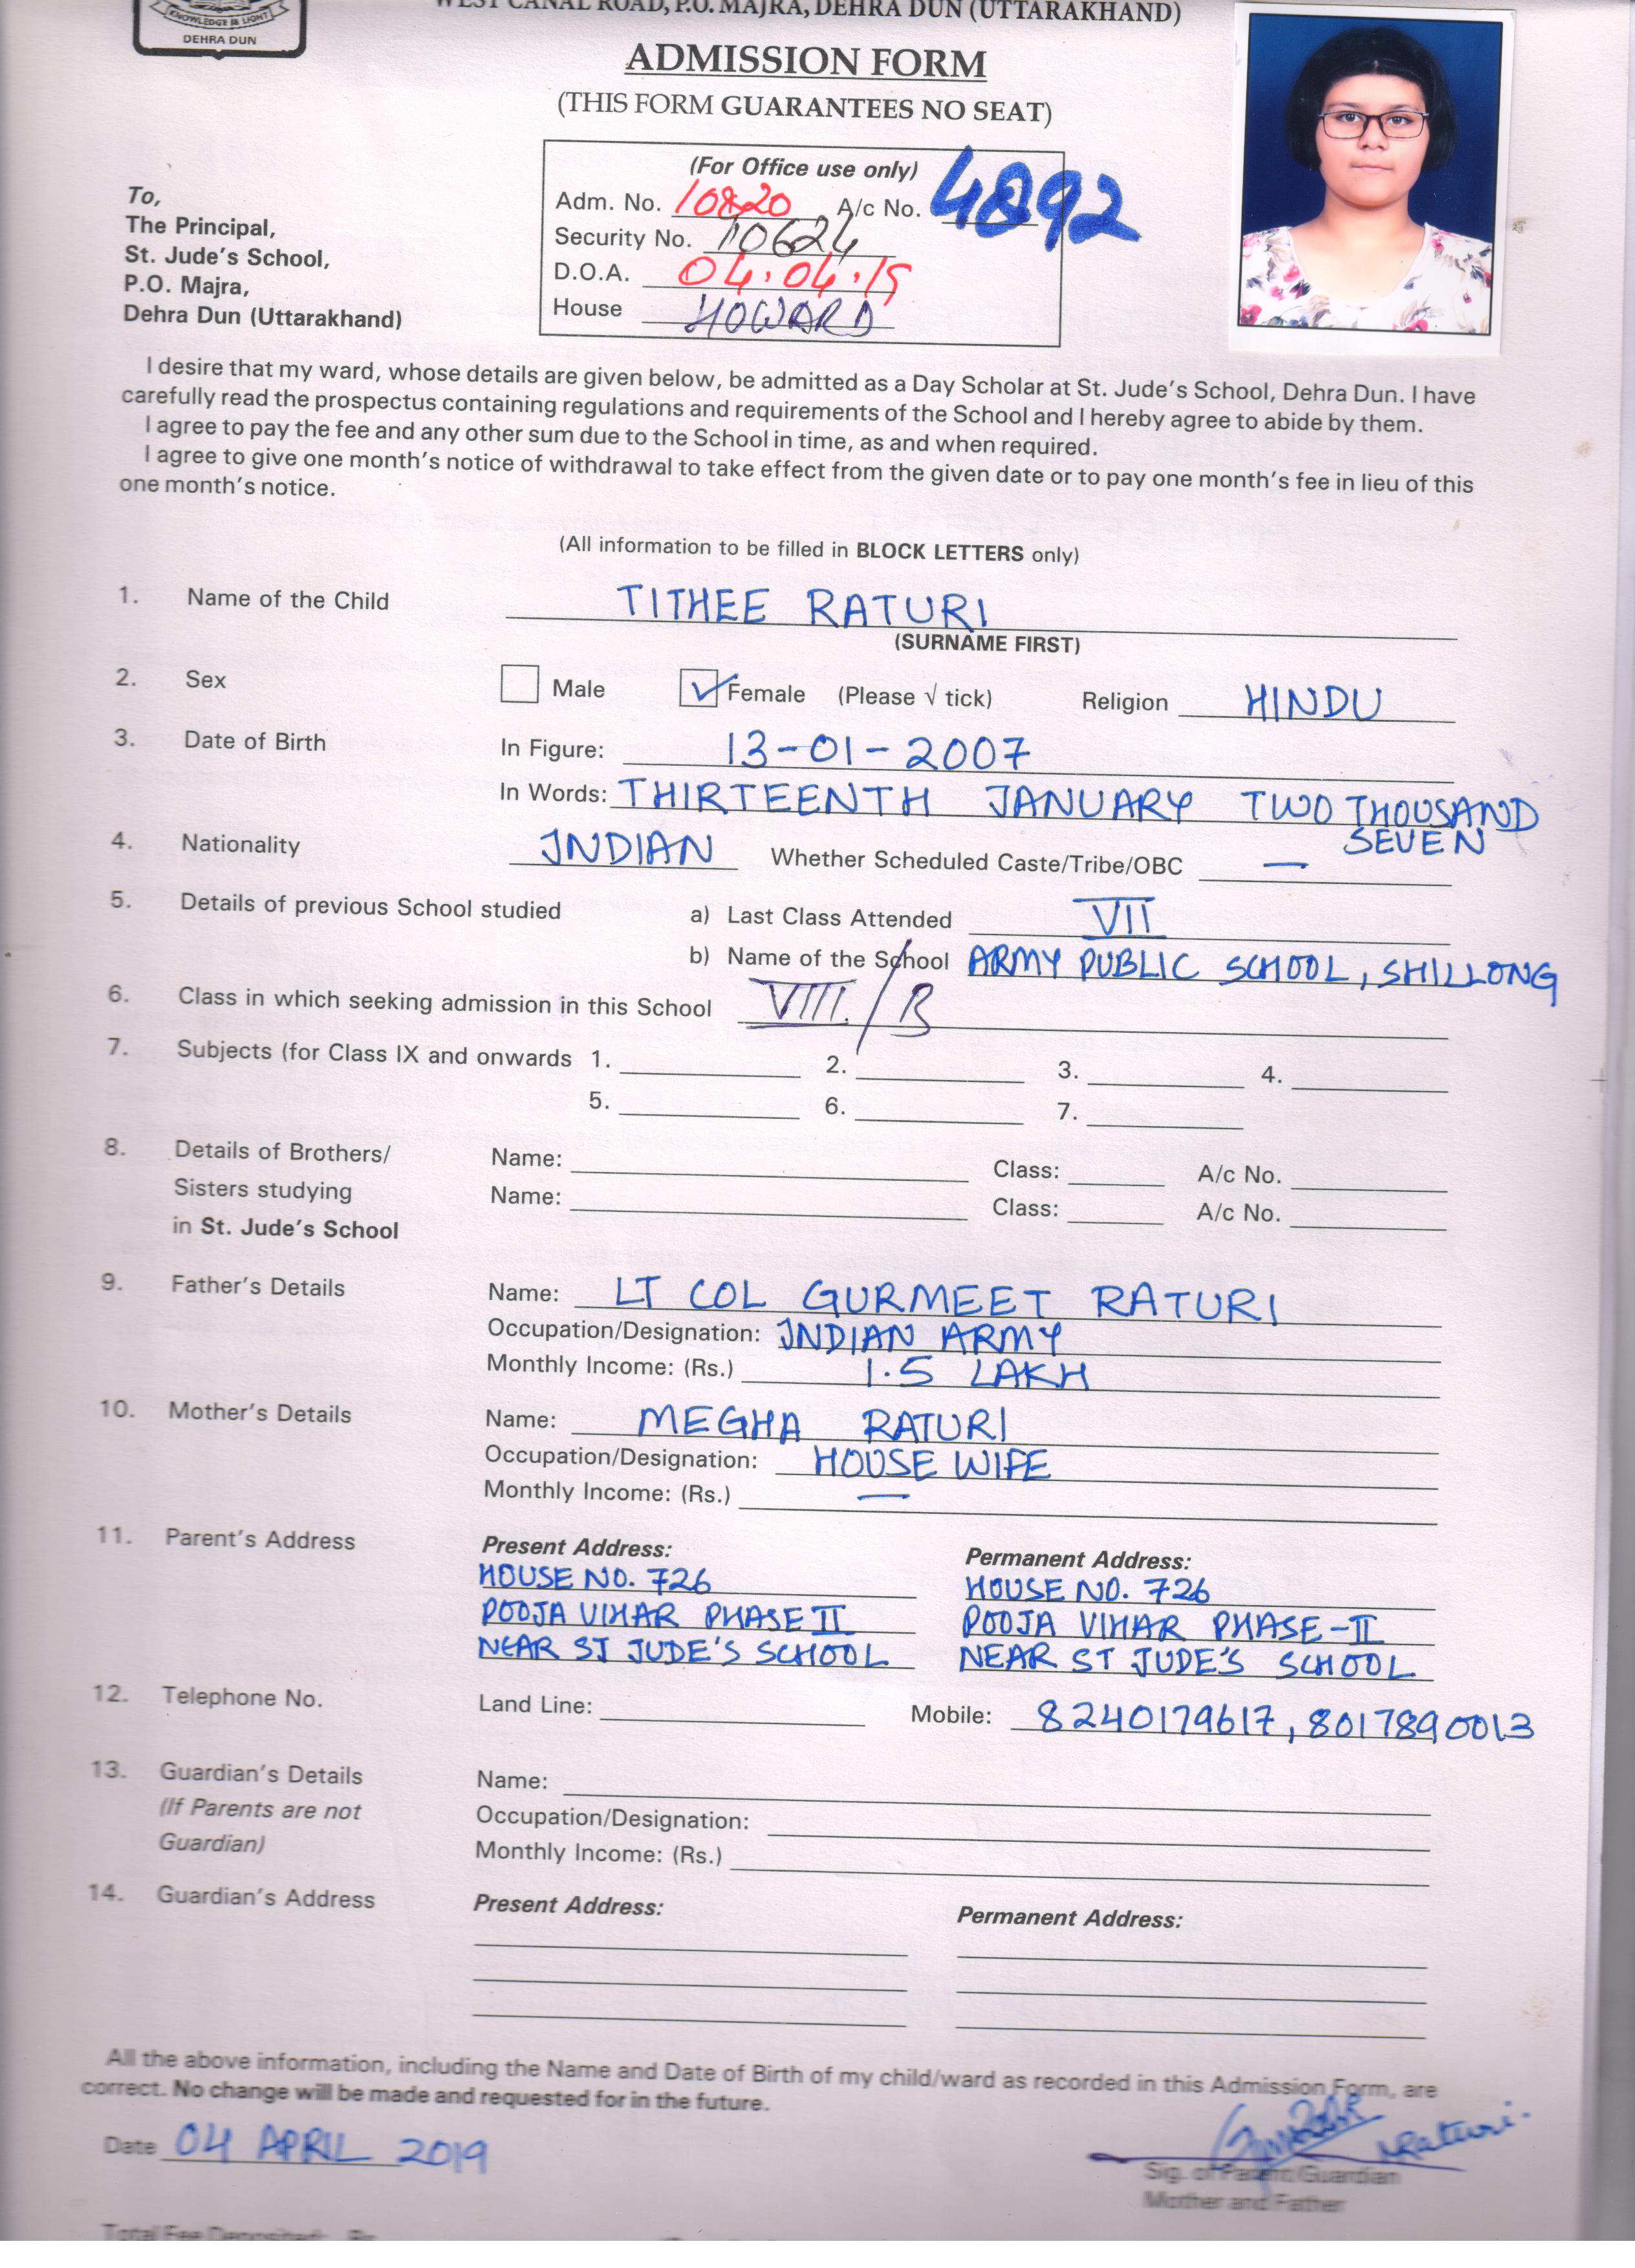 KNOWLEDGE IS LIGHT
DEHRA DUN
WEST CANAL ROAD, P.O. MAJRA, DEHRA DUN (UTTARAKHAND)
ADMISSION FORM
(THIS FORM GUARANTEES NO SEAT)
(For Office use only)
Adm. No. 10820 A/c No. 4892
Security No. 10624
D.O.A. 04.04.19
House HOWARD
To,
The Principal,
St. Jude's School,
P.O. Majra,
Dehra Dun (Uttarakhand)
I desire that my ward, whose details are given below, be admitted as a Day Scholar at St. Jude's School, Dehra Dun. I have
carefully read the prospectus containing regulations and requirements of the School and I hereby agree to abide by them.
I agree to pay the fee and any other sum due to the School in time, as and when required.
I agree to give one month's notice of withdrawal to take effect from the given date or to pay one month's fee in lieu of this
one month's notice.
(All information to be filled in BLOCK LETTERS only)
1. Name of the Child TITHEE RATURI
(SURNAME FIRST)
2. Sex Male Female (Please √ tick) Religion HINDU
3. Date of Birth In Figure: 13-01-2007
In Words: THIRTEENTH JANUARY TWO THOUSAND
SEVEN
4. Nationality INDIAN Whether Scheduled Caste/Tribe/OBC —
5. Details of previous School studied a) Last Class Attended VII
b) Name of the School ARMY PUBLIC SCHOOL, SHILLONG
6. Class in which seeking admission in this School VIII. / B
7. Subjects (for Class IX and onwards 1. 2. 3. 4.
5. 6. 7.
8. Details of Brothers/ Name: Class: A/c No.
Sisters studying Name: Class: A/c No.
in St. Jude's School
9. Father's Details Name: LT COL GURMEET RATURI
Occupation/Designation: INDIAN ARMY
Monthly Income: (Rs.) 1.5 LAKH
10. Mother's Details Name: MEGHA RATURI
Occupation/Designation: HOUSE WIFE
Monthly Income: (Rs.) —
11. Parent's Address Present Address: Permanent Address:
HOUSE NO. 726 HOUSE NO. 726
POOJA VIHAR PHASE II POOJA VIHAR PHASE-II
NEAR ST JUDE'S SCHOOL NEAR ST JUDE'S SCHOOL
12. Telephone No. Land Line: Mobile: 8240179617, 8017890013
13. Guardian's Details Name:
(If Parents are not Occupation/Designation:
Guardian) Monthly Income: (Rs.)
14. Guardian's Address Present Address: Permanent Address:
All the above information, including the Name and Date of Birth of my child/ward as recorded in this Admission Form, are
correct. No change will be made and requested for in the future.
Date 04 APRIL 2019 Raturi.
Sig. of Parent/Guardian
Mother and Father
Total Fee Deposited: Rs.